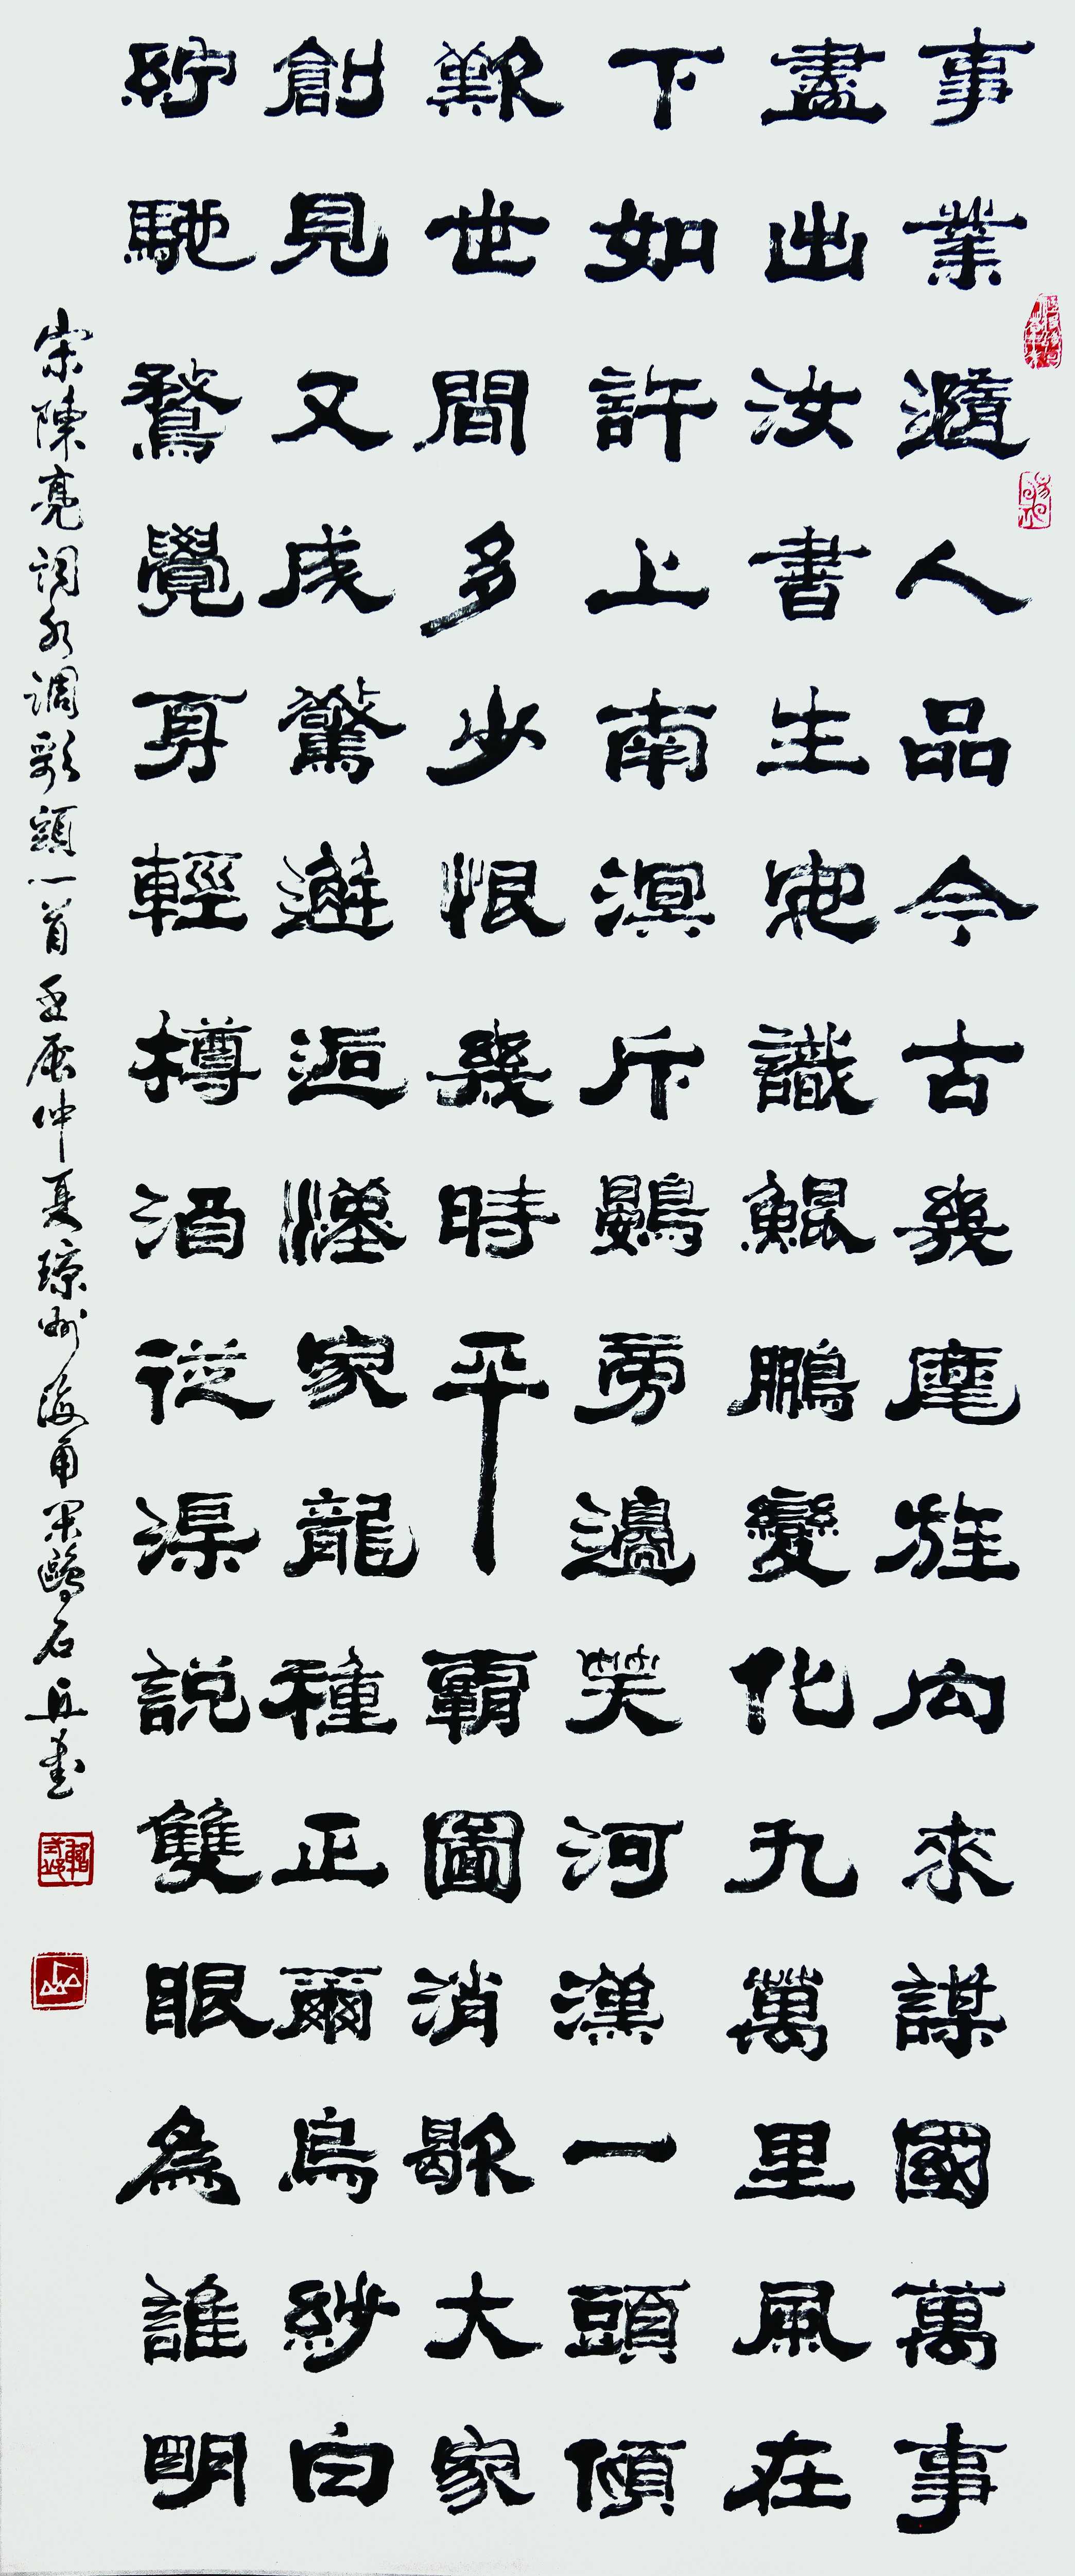 事業隨人品今古幾麾旌向來謀國萬事
盡出汝書生安識鯤鵬變化九萬里風在
下如許上南溟斥鷃旁邊笑河漢一頭傾
歎世間多少恨幾時平霸圖消歇大家
創見又成驚邂逅漢家龍種正爾烏紗白
紵馳騖覺身輕樽酒從渠說雙眼為誰明
宋陳亮詞水調歌頭一首壬辰仲夏瓊州海角石丘書